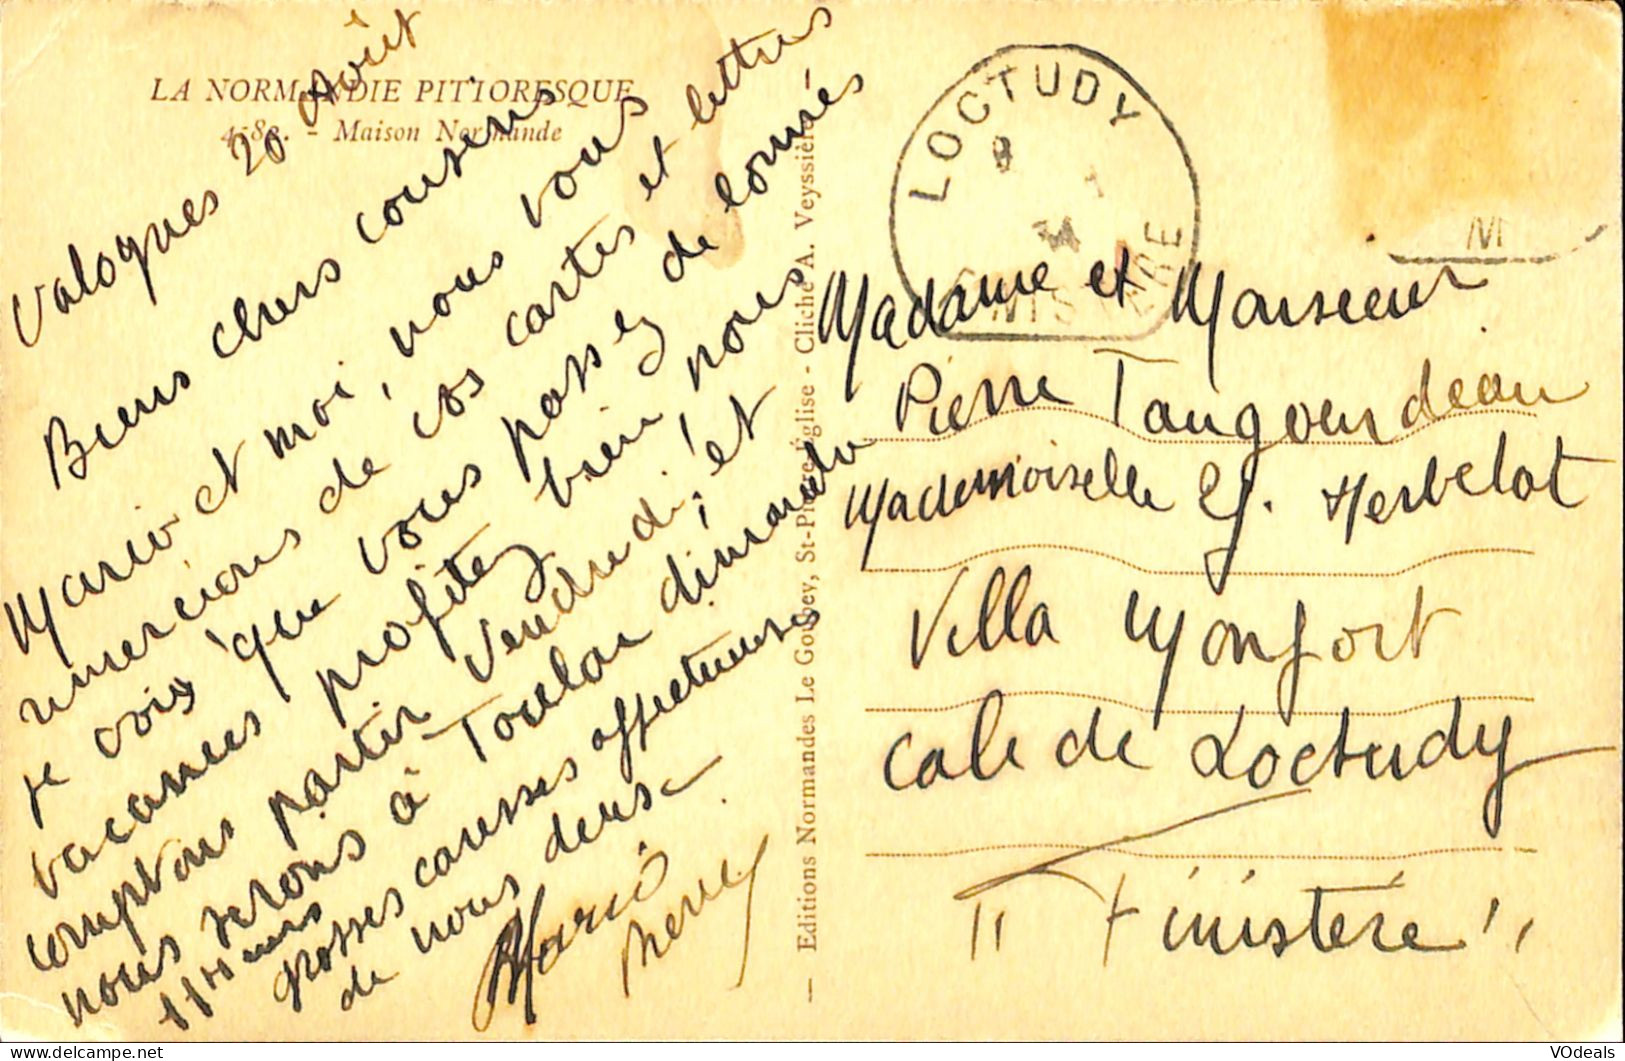 LA NORMANDIE PITTORESQUE
- Maison Normande
Valognes 20 Août
Biens chers cousins
Mario et moi, nous vous
remercions de vos cartes et lettres
je vois que vous passez de bonnes
vacances profitez bien nous
comptons partir Vendredi, et
nous serons à Toulon dimanche
grosses caresses affectueuses
de nous deux
Mario
- Editions Normandes Le Goubey, St-Pierre-Église - Cliché A. Veyssière
LOCTUDY
Madame et Monsieur
Pierre Taugourdeau
Mademoiselle G. Herbelot
Villa Monfort
Cale de Loctudy
"Finistère"
VOdeals